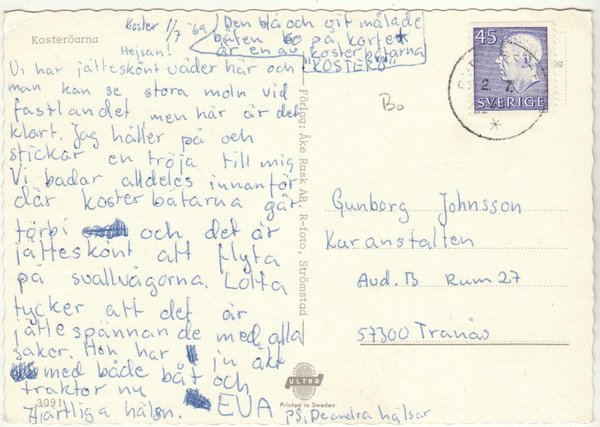 Kosteröarna
Koster 1/7 -69
Den blå och vit målade
båten på kortet
är en av kosterbåtarna
"KOSTERÖ"
Hejsan!
Vi har jätteskönt väder här och
man kan se stora moln vid
fastlandet men här är det
klart. Jag håller på och
stickar en tröja till mig
Vi badar alldeles innanför
där kosterbåtarna går
förbi och det är
jätteskönt att flyta
på svallvågorna. Lotta
tycker att det är
jättespännande med alla
saker. Hon har ju åkt
med både båt och
traktor nu
Hjärtliga häls. EVA
PS, De andra hälsar
3091
Förlag: Åke Rask AB, R-foto, Strömstad
ULTRO
Printed in Sweden
45
SVERIGE
2. 7.
Bo
Gunborg Johnsson
Kuranstalten
Avd. B Rum 27
57300 Tranås